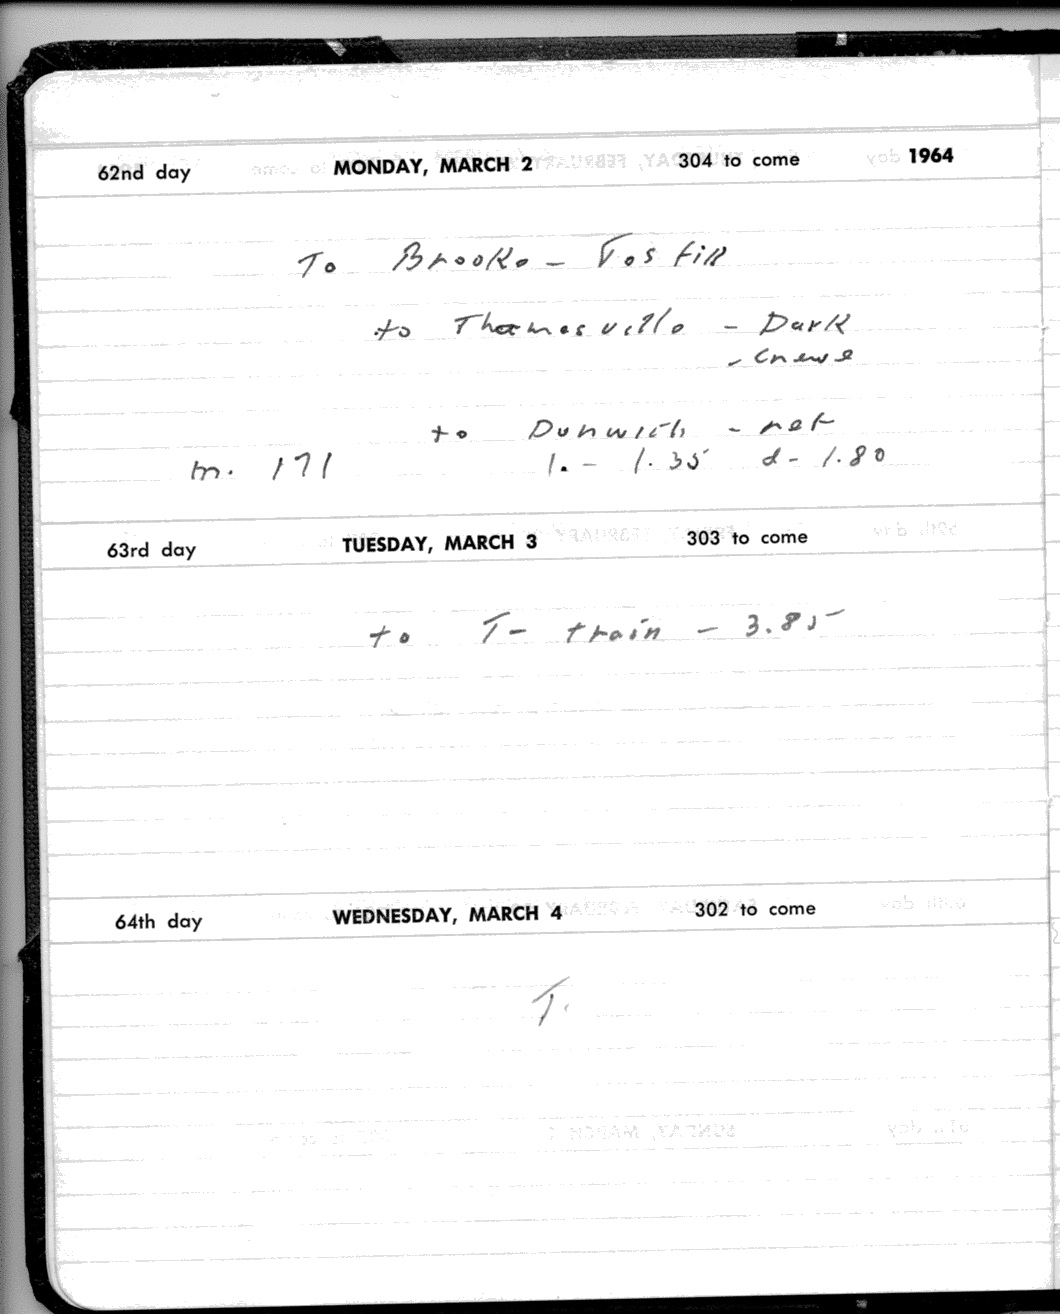 62nd day MONDAY, MARCH 2 304 to come 1964
To Brooke - Vosfill
to Thamesville - Dark
- Cnewe
to Dunwich - net
m. 171 l. - 1.35 d - 1.80
63rd day TUESDAY, MARCH 3 303 to come
to T - train - 3.85
64th day WEDNESDAY, MARCH 4 302 to come
T.